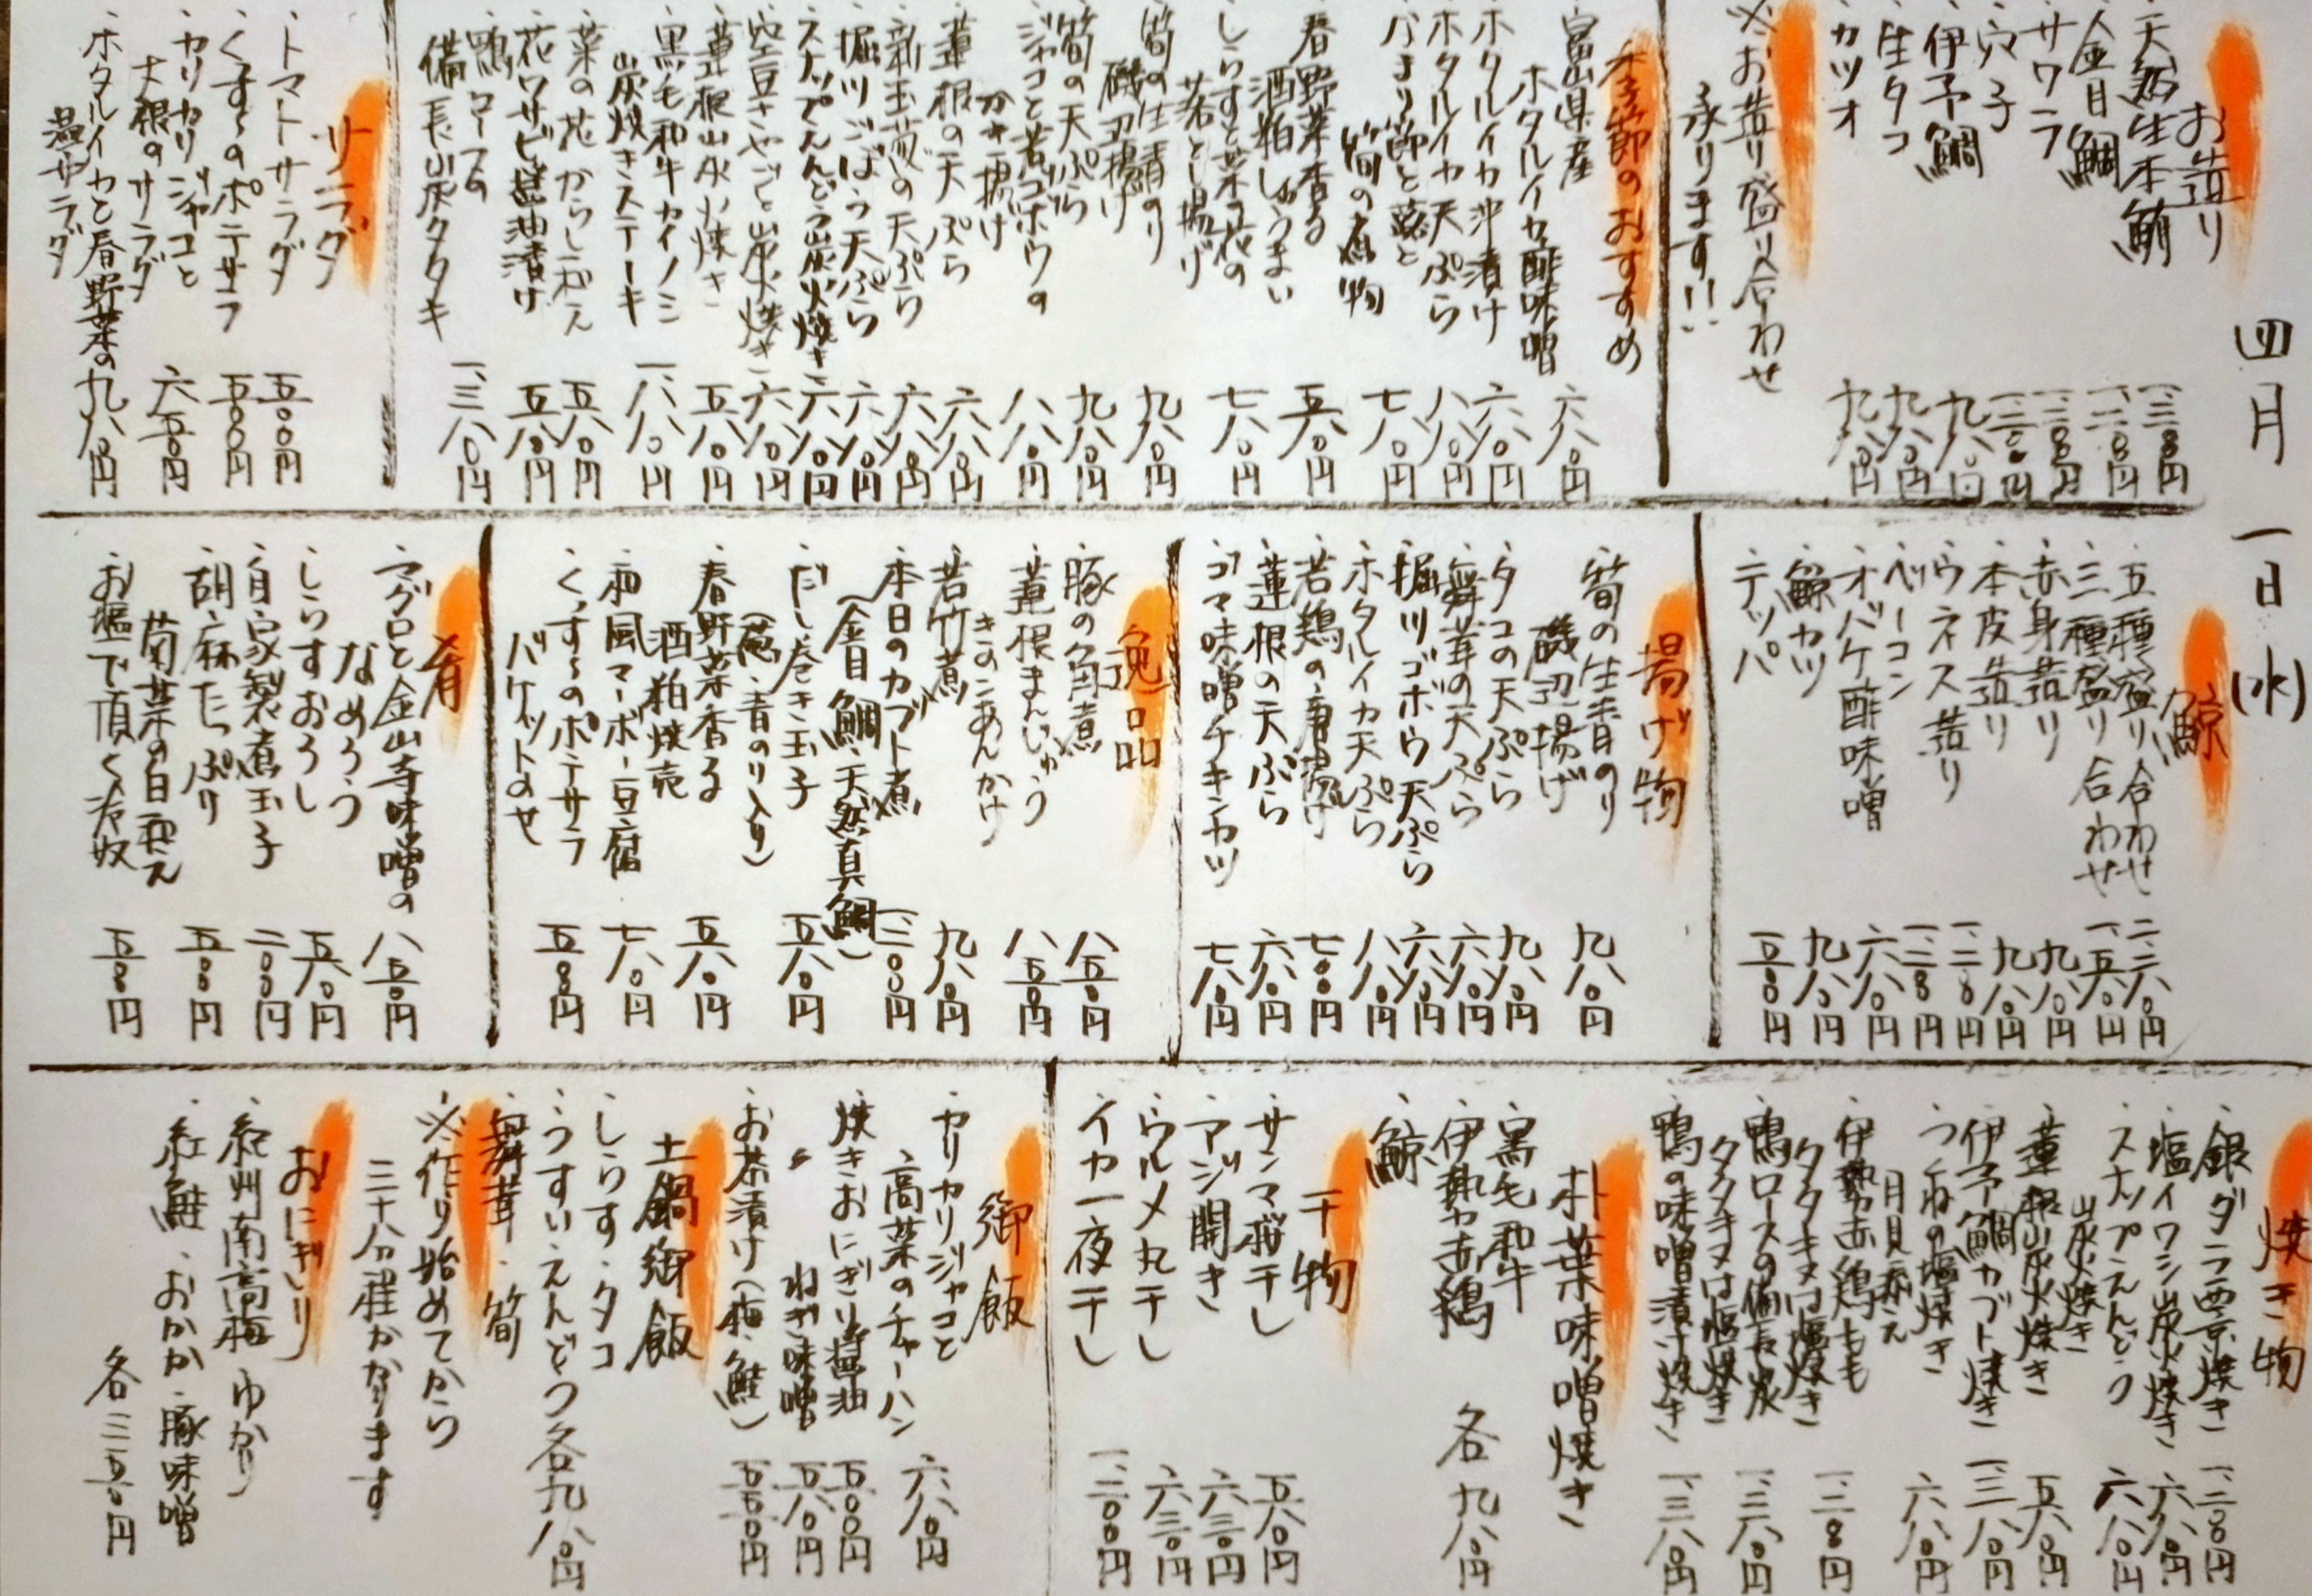 四月一日(水)
お造り
・天然生本鮪 一、三〇〇円
・金目鯛 一、二〇〇円
・サワラ 一、二〇〇円
・穴子 一、二〇〇円
・伊予鯛 九八〇円
・生タコ 九八〇円
・カツオ 九八〇円
※お造り盛り合わせ
承ります!!
季節のおすすめ
・富山県産
ホタルイカ酢味噌 六八〇円
・ホタルイカ沖漬け 六八〇円
・ホタルイカ天ぷら 八八〇円
・バチコ
筍の煮物 七八〇円
・春野菜香る
酒粕しゅうまい 五八〇円
・しらすと菜の花の
落とし揚げ 七八〇円
・筍の生青のり
磯辺揚げ 九八〇円
・筍の天ぷら 九八〇円
・ジャコと若ゴボウの
かき揚げ 八八〇円
・蓮根の天ぷら 六八〇円
・新玉葱の天ぷら 六八〇円
・堀川ごぼう天ぷら 六八〇円
・スナップえんどう炭火焼き 六八〇円
・空豆さやごと炭火焼き 六八〇円
・蓮根炭火焼き 五八〇円
・黒毛和牛カイノミ
炭焼きステーキ 一、八八〇円
・菜の花からし和え 五八〇円
・花ワサビ醤油漬け 五八〇円
・鴨ロースの
備長炭タタキ 一、三八〇円
サラダ
・トマトサラダ 五〇〇円
・くずしのポテサラ 五〇〇円
・カリカリジャコと
大根のサラダ 六五〇円
・ホタルイカと春野菜の
温サラダ 九八〇円
鯨
・五種盛り合わせ 二、三八〇円
・三種盛り合わせ 一、五八〇円
・赤身造り 九八〇円
・本皮造り 九八〇円
・ウネス造り 一、二八〇円
・ベーコン 一、三八〇円
・オバケ酢味噌 六八〇円
・鯨カツ 九八〇円
・テッパ 一、五〇〇円
揚げ物
・筍の生青のり
磯辺揚げ 九八〇円
・タコの天ぷら 九八〇円
・舞茸の天ぷら 六八〇円
・堀川ゴボウ天ぷら 六八〇円
・ホタルイカ天ぷら 八八〇円
・若鶏の唐揚げ 七〇〇円
・蓮根の天ぷら 六八〇円
・ゴマ味噌チキンカツ 七八〇円
逸品
・豚の角煮 八五〇円
・蓮根まんじゅう
きのこあんかけ 八五〇円
・若竹煮 九八〇円
・本日のカブト煮
(金目鯛・天然真鯛) 一、三〇〇円
・だし巻き玉子
(葱・青のり入り) 五八〇円
・春野菜香る
酒粕焼売 五八〇円
・和風マーボー豆腐 七八〇円
・くずしのポテサラ
バケットのせ 五〇〇円
肴
・マグロと金山寺味噌の
なめろう 八五〇円
・しらすおろし 五八〇円
・自家製煮玉子 二〇〇円
・胡麻たっぷり
菊菜の白和え 五〇〇円
・お塩で頂く冷奴 五〇〇円
焼き物
・銀ダラ西京焼き 一、二〇〇円
・塩イワシ炭火焼き 六八〇円
・スナップえんどう
炭火焼き 六八〇円
・蓮根炭火焼き 五八〇円
・伊予鯛カブト焼き 一、三八〇円
・つくねの塩焼き
月見和え 六八〇円
・伊勢赤鶏もも
タタキ又は塩焼き 一、二〇〇円
・鴨ロースの備長炭
タタキ又は塩焼き 一、三八〇円
・鴨の味噌漬け焼き 一、三八〇円
朴葉味噌焼き
・黒毛和牛
・伊勢赤鶏 各九八〇円
・鯨
干物
・サンマ桜干し 五八〇円
・アジ開き 六三〇円
・ウルメ丸干し 六三〇円
・イカ一夜干し 一、二〇〇円
御飯
・カリカリジャコと
高菜のチャーハン 六八〇円
・焼きおにぎり醤油 五〇〇円
・〃 ねぎ味噌 五八〇円
・お茶漬け(梅・鮭) 五五〇円
土鍋御飯
・しらす・タコ
・うすいえんどう 各九八〇円
・舞茸・筍
※作り始めてから
三十分程かかります
おにぎり
・紀州南高梅・ゆかり
・紅鮭・おかか・豚味噌
各三五〇円